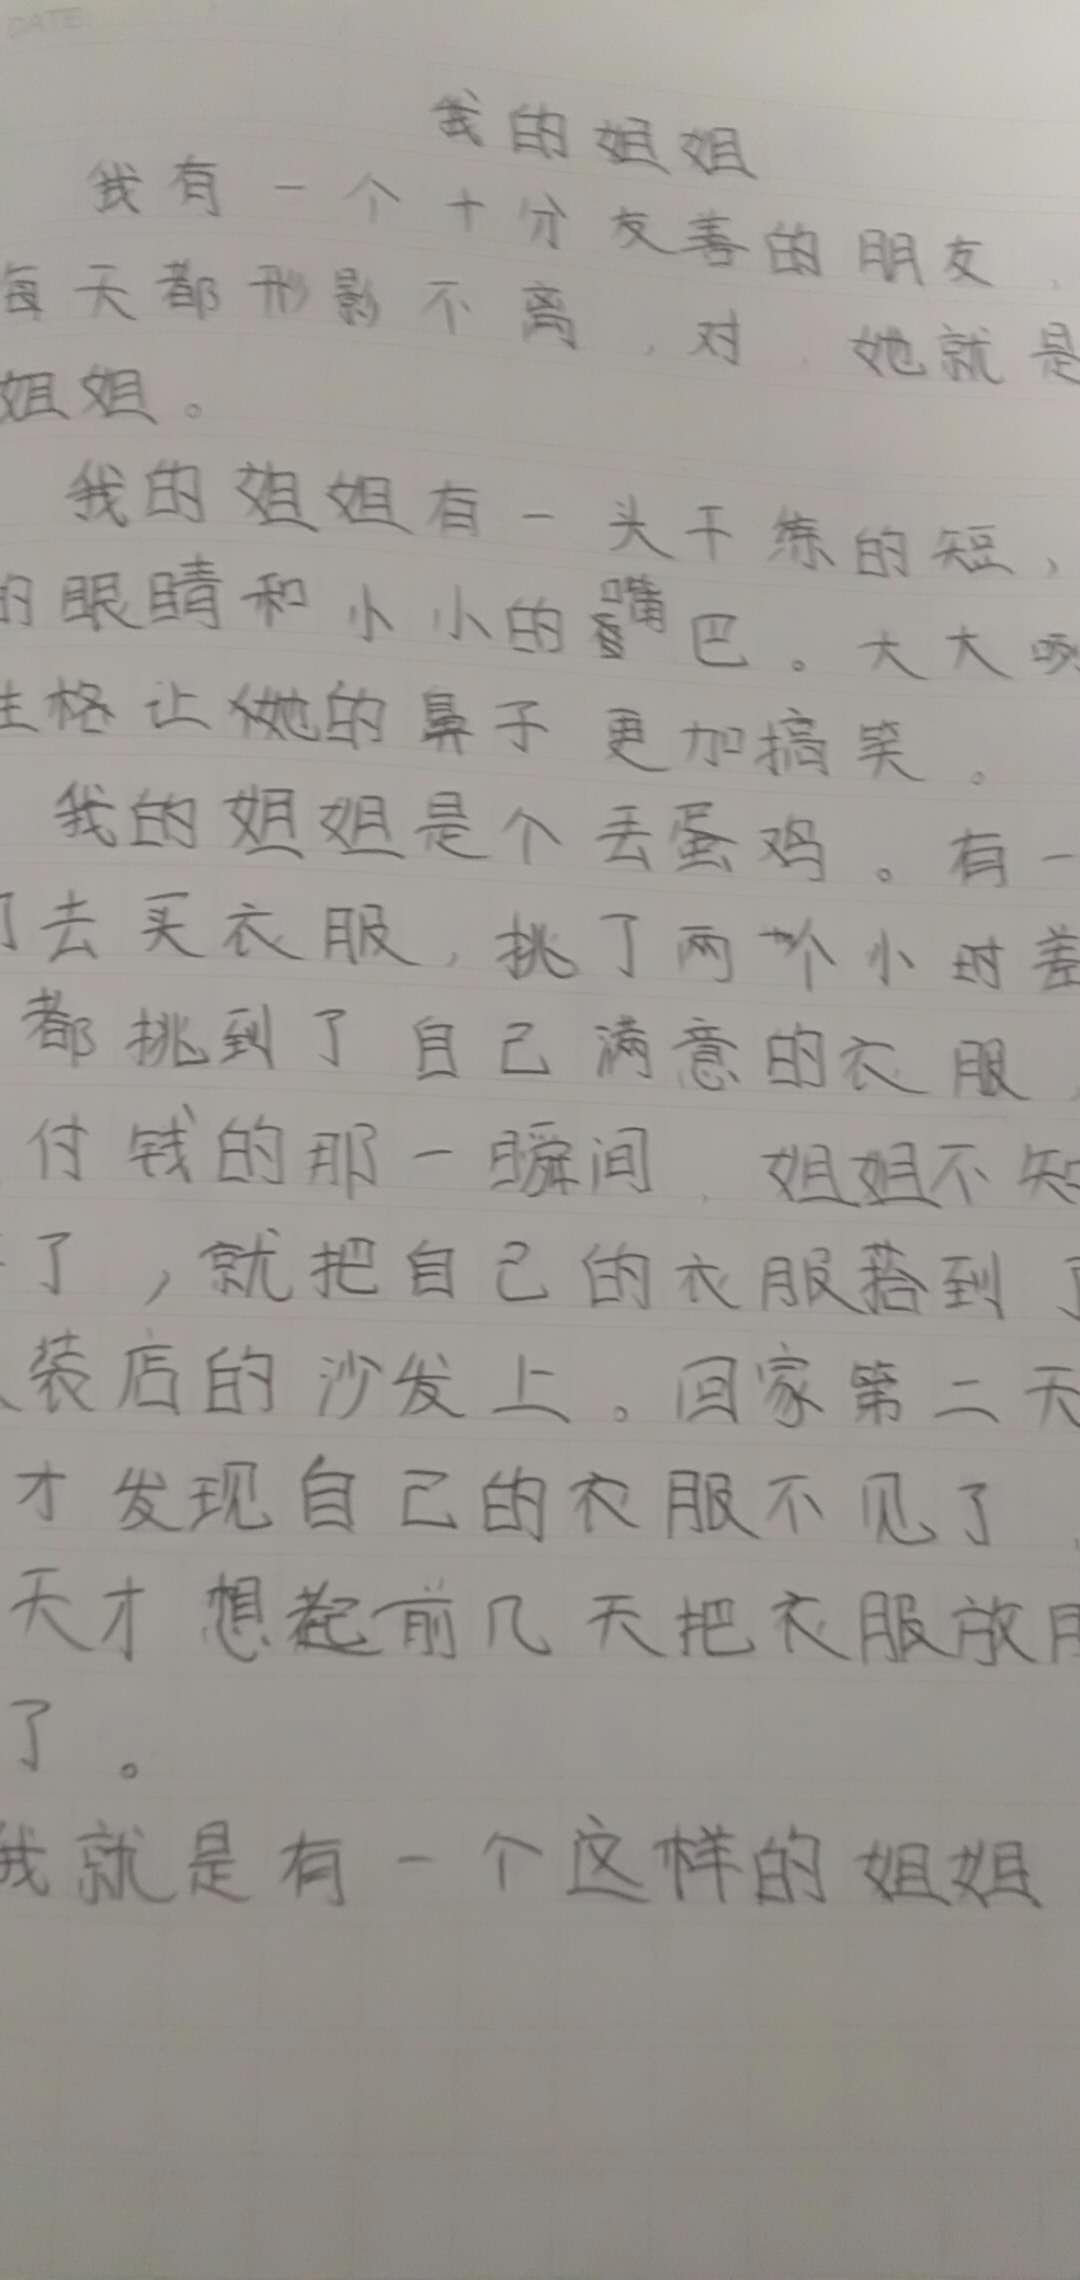 DATE
我的姐姐
我有一个十分友善的朋友，
每天都形影不离，对，她就是
姐姐。
我的姐姐有一头干练的短，
的眼睛和小小的嘴巴。大大咧
性格让她的鼻子更加搞笑。
我的姐姐是个丢蛋鸡。有一
们去买衣服，挑了两个小时差
都挑到了自己满意的衣服，
付钱的那一瞬间，姐姐不知
了，就把自己的衣服搭到了
装店的沙发上。回家第二天
才发现自己的衣服不见了，
天才想起前几天把衣服放服
了。
我就是有一个这样的姐姐